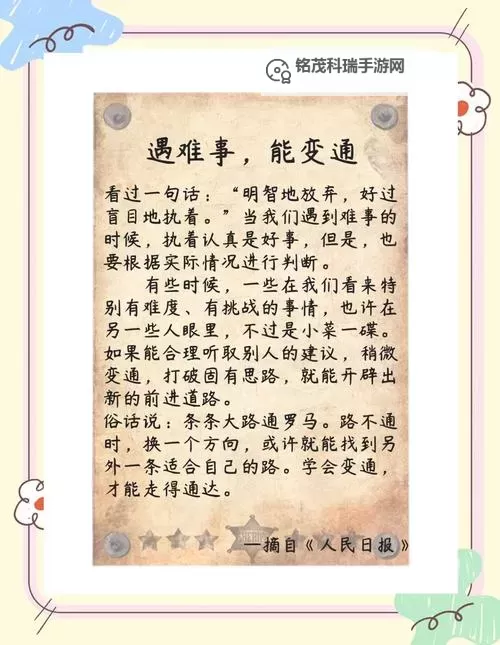 铭茂科瑞手游网
遇难事，能变通
看过一句话：“明智地放弃，好过
盲目地执着。”当我们遇到难事的
时候，执着认真是好事，但是，也
要根据实际情况进行判断。
有些时候，一些在我们看来特
别有难度、有挑战的事情，也许在
另一些人眼里，不过是小菜一碟。
如果能合理听取别人的建议，稍微
变通，打破固有思路，就能开辟出
新的前进道路。
俗话说：条条大路通罗马。路不通
时，换一个方向，或许就能找到另
外一条适合自己的路。学会变通，
才能走得通达。
—摘自《人民日报》